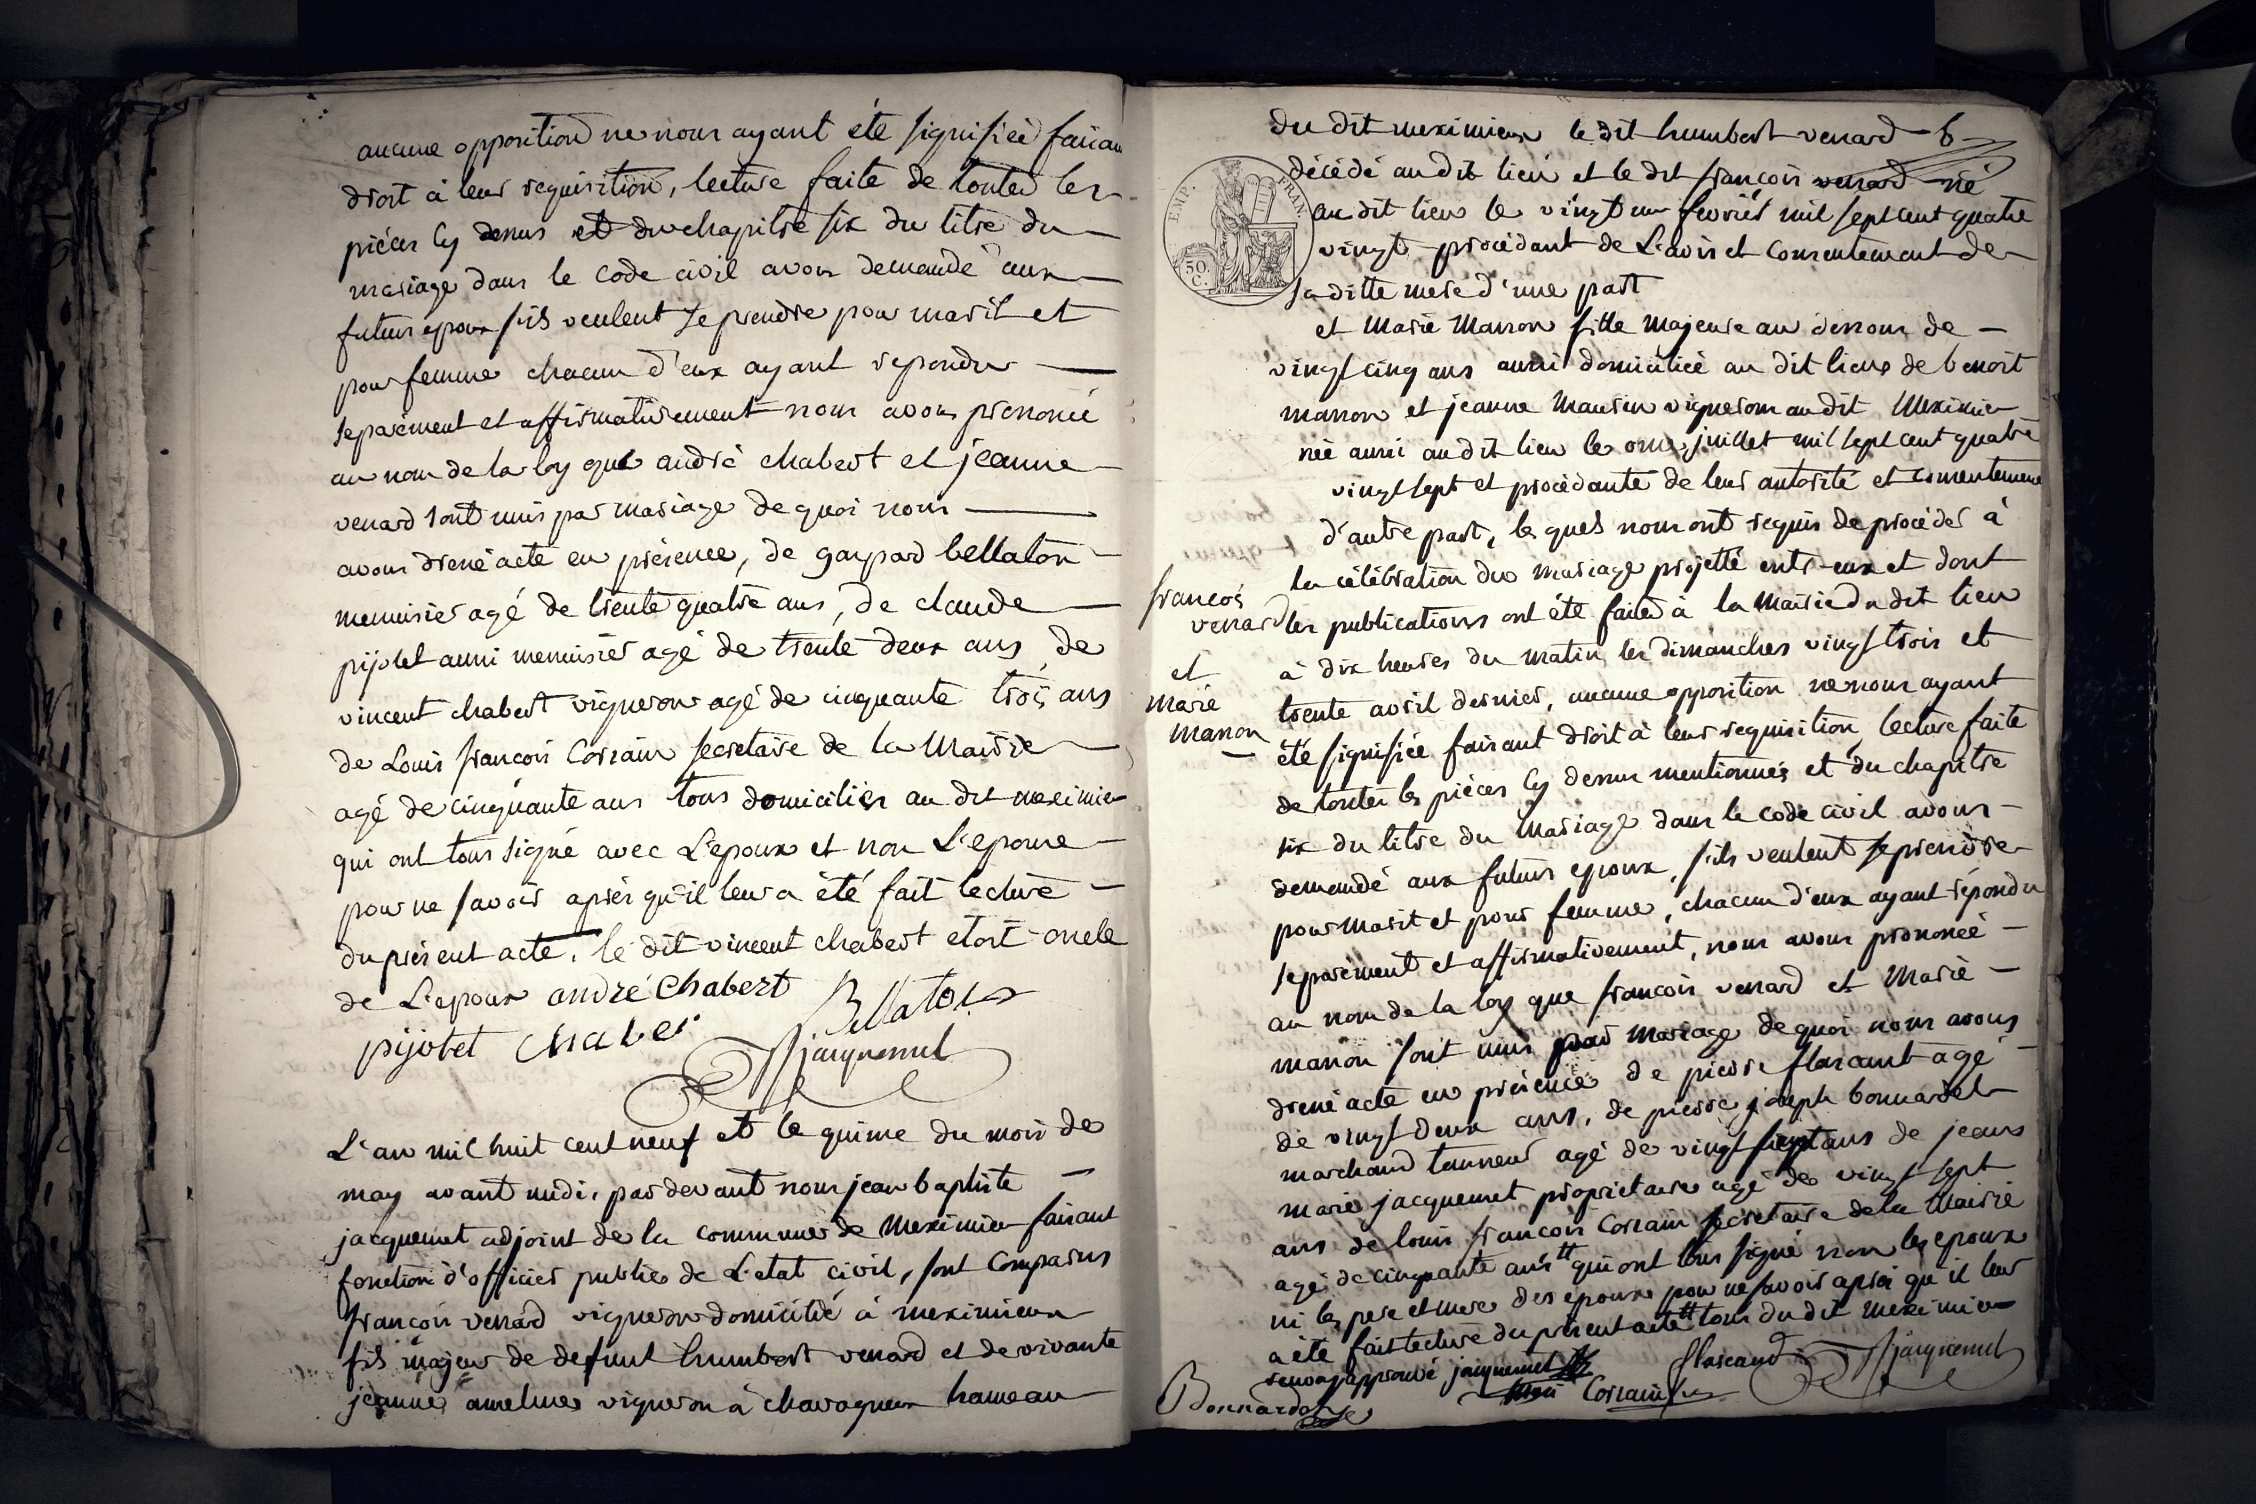 aucune opposition ne nous ayant été signifiée faisan
droit à leur requisition, lecture faite de toutes les
piéces cy dessus et du chapitre six du titre du
mariage dans le code civil avons demandé aux
futurs epoux s'ils veulent se prendre pour marit et
pour femme chacun d'eux ayant repondu
separément et affirmativement nous avons prononcé
au nom de la loy que andré chabert et jeanne
venard sont unis par mariage de quoi nous
avons dressé acte en présence, de gaspard bellaton
menuisier agé de trente quatre ans, de claude
pijolet aussi menuisier agé de trente deux ans de
vincent chabert vigneron agé de cinquante trois ans
de Louis françois Corrain secretaire de la Mairie
agé de cinquante ans tous domiciliés au dit meximieu
qui ont tous signé avec L'epoux et non L'epouse
pour ne savoir aprés qu'il leur a été fait lecture
du présent acte. le dit vincent chabert etoit oncle
de L'epoux andré Chabert Bellaton
pijolet chaber jacquemet
L'an mil huit cent neuf et le quinze du mois de
may avant midi, par devant nous jean baptiste
jacquemet adjoint de la commune de Meximieu faisant
fonction d'officier public de L'etat civil, sont Comparus
françois venard vigneron domicilié à meximieux
fils majeur de defunt humbert venard et de vivante
jeanne vigneron à chavagneux hameau
du dit meximieux le dit humbert venard 6
décédé au dit lieu et le dit françois venard né
EMP. FRAN.
50
C.
au dit lieu le vingt un fevrier mil sept cent quatre
vingt procédant de L'avis et Consentement de
sa ditte mere d'une part
et Marie Manon fille Majeure au dessous de
vingt cinq ans aussi domiciliée au dit lieu de benoit
manon et jeanne vignerons au dit Meximieu
née aussi au dit lieu le onze juillet mil sept cent quatre
vingt sept et procédante de leur autorité et consentement
d'autre part, les quels nous ont requis de procéder à
la célébration du mariage projetté entr-eux et dont
françois
venard
et
marie
manon
les publications ont été faites à la Mairie du dit lieu
à dix heures du matin les dimanches vingt trois et
trente avril dernier, aucune opposition ne nous ayant
été signifiée faisant droit à leur requisition lecture faite
de toutes les piéces cy dessus mentionnés et du chapitre
six du titre du Mariage dans le code civil avons
demandé aux futurs epoux, s'ils veulent se prendre
pour marit et pour femme, chacun d'eux ayant répondu
separément et affirmativement, nous avons prononcé
au nom de la loy que françois venard et Marie
manon sont unis par mariage de quoi nous avons
dressé acte en présence de pierre flascaut agé
de vingt deux ans, de pierre joseph bonnardel
marchand tanneur agé de vingt sept ans de jean
marie jacquemet propriétaire agé de vingt sept
ans de louis françois Corrain secretaire de la Mairie
agé de cinquante ans qui ont tous signé non les epoux
ni les pere et mere des epoux pour ne savoir aprés qu'il leur
a été fait lecture du présent acte tous du dit meximieu
renvoi approuvé jacquemet flascaud jacquemet
Bonnardel Corrain